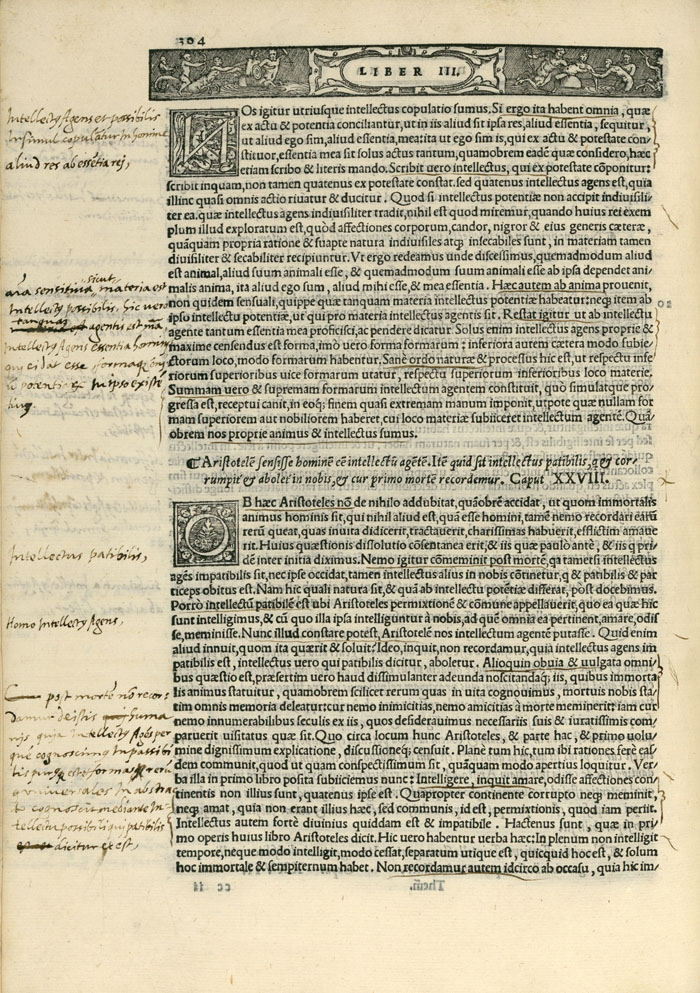 304
LIBER III.
NOs igitur utriusque intellectus copulatio sumus. Si ergo ita habent omnia, quæ
ex actu & potentia conciliantur, ut in iis aliud sit ipsa res, aliud essentia, sequitur,
ut aliud ego sim, aliud essentia mea: ita ut ego sim is, qui ex actu & potestate con-
stituor, essentia mea sit solus actus tantum, quamobrem eadē quæ considero, hæc
etiam scribo & literis mando. Scribit uero intellectus, qui ex potestate cōponitur:
scribit inquam, non tamen quatenus ex potestate constat. sed quatenus intellectus agens est, quia
illinc quasi omnis actio riuatur & ducitur. Quod si intellectus potentiæ non accipit indiuisili-
ter ea. quæ intellectus agens indiuisiliter tradit, nihil est quod miremur, quando huius rei exem
plum illud exploratum est, quòd affectiones corporum, candor, nigror & eius generis cæteræ,
quāquam propria ratione & suapte natura indiuisiles atqȝ insecabiles sunt, in materiam tamen
diuisiliter & secabiliter recipiuntur. Vt ergo redeamus unde discessimus, quemadmodum aliud
est animal, aliud suum animali esse, & quemadmodum suum animali esse ab ipsa dependet ani-
malis anima, ita aliud ego sum, aliud mihi esse, & mea essentia. Hæc autem ab anima prouenit,
non quidem sensuali, quippe quæ tanquam materia intellectus potentiæ habeatur: neqȝ item ab
ipso intellectu potentiæ, ut qui pro materia intellectus agentis sit. Restat igitur ut ab intellectu
agente tantum essentia mea proficisci, ac pendere dicatur. Solus enim intellectus agens proprie &
maxime censendus est forma, imò uero forma formarum: inferiora autem cætera modo subie-
ctorum loco, modo formarum habentur. Sanè ordo naturæ & processus hic est, ut respectu infe-
riorum superioribus uice formarum utatur, respectu superiorum inferioribus loco materie.
Summam uero & supremam formarum intellectum agentem constituit, quò simulatque pro-
gressa est, receptui canit, in eoqȝ finem quasi extremam manum imponit, utpote quæ nullam for
mam superiorem aut nobiliorem haberet, cui loco materiæ subiiceret intellectum agentē. Quā
obrem nos proprie animus & intellectus sumus.
¶ Aristotelē sensisse hominē eē intellectū agētē. Itē quid sit intellectus patibilis, qȝ cor-
rumpi & aboleri in nobis, & cur primo mortē recordemur. Caput XXVIII.
OB hæc Aristoteles nō de nihilo addubitat, quāobrē accidat, ut quom immortalis
animus hominis sit, qui nihil aliud est, quā esse homini, tamē nemo recordari earū
rerū queat, quas inuita didicerit, tractauerit, charissimas habuerit, efflictim amaue
rit. Huius quæstionis dissolutio cōsentanea erit, & iis quæ paulò antè, & iis q̄ pri-
dē inter initia diximus. Nemo igitur cōmeminit post mortē, qa tametsi intellectus
agēs impatibilis sit, nec ipse occidat, tamen intellectus alius in nobis cōtinetur, q & patibilis & par
ticeps obitus est. Nam hic quali natura sit, & quā ab intellectu potētiæ differat, pòst docebimus.
Porrò intellectū patibilē est ubi Aristoteles permixtionē & cōmune appellauerit, quo ea quæ hic
sunt intelligimus, & cū quo illa ipsa intelliguntur à nobis, ad quē omnia ea pertinent, amare, odis
se, meminisse. Nunc illud constare potest, Aristotelē nos intellectum agentē putasse. Quid enim
aliud innuit, quom ita quærit & soluit? Ideo, inquit, non recordamur, quia intellectus agens im
patibilis est, intellectus uero qui patibilis dicitur, aboletur. Alioquin obuia & uulgata omni-
bus quæstio est, præsertim uero haud dissimulanter adeunda noscitandaqȝ iis, quibus immorta
lis animus statuitur, quamobrem scilicet rerum quas in uita cognouimus, mortuis nobis sta-
tim omnis memoria deleatur: cur nemo inimicitias, nemo amicitias à morte meminerit: iam cur
nemo innumerabilibus seculis ex iis, quos desiderauimus necessariis suis & iuratissimis com-
paruerit uisitatus quæ sit. Quo circa locum hunc Aristoteles, & parte hac, & primo uolu-
mine dignissimum explicatione, discussioneqȝ censuit. Planè tum hic, tum ibi rationes ferè eas-
dem communit, quod ut quam conspectissimum sit, quāquam modo apertius loquitur. Ver-
ba illa in primo libro posita subiiciemus nunc: Intelligere, inquit amare, odisse affectiones con-
tinentis non illius sunt, quatenus ipse est. Quapropter continente corrupto neqȝ meminit,
neqȝ amat, quia non erant illius hæc, sed communis, id est, permixtionis, quod iam periit.
Intellectus autem fortè diuinius quiddam est & impatibile. Hactenus sunt, quæ in pri-
mo operis huius libro Aristoteles dicit. Hic uero habentur uerba hæc: In plenum non intelligit
tempore, neque modo intelligit, modo cessat, separatum utique est, quicquid hoc est, & solum
hoc immortale & sempiternum habet. Non recordamur autem idcirco ab occasu, quia hic im-
Intellectus Agens et possibilis
insimul copulatur in homine
aliud res ab essētia rej,
Intellectus patibilis,
Homo Intellectus Agens,